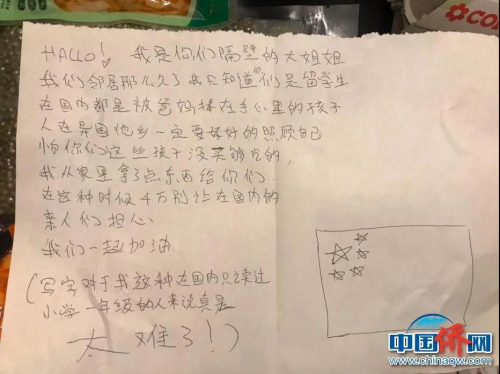 HALLO! 我是你们隔壁的大姐姐
我们邻居那么久了我只知道你们是留学生
在国内都是被爸妈捧在手心里的孩子
人在异国他乡一定要好好的照顾自己
怕你们这些孩子没买够吃的,
我从家里拿了点东西给你们.
在这种时候千万别让在国内的
亲人们担心
我们一起加油
(写字对于我这种在国内只读过
小学一年级的人来说真是
太难了!)
中国侨网
www.chinaqw.com